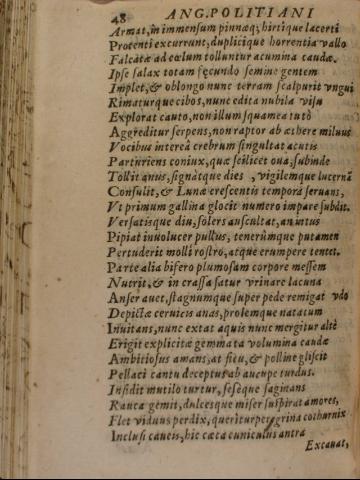 48 ANG. POLITIANI
Armat, in immensum pinnæq; hirtique lacerti
Protenti excurrunt, duplicique horrentia vallo
Falcatæ ad cœlum tolluntur acumina caudæ.
Ipse salax totam fęcundo semine gentem
Implet, & oblongo nunc terram scalpurit vngui
Rimaturque cibos, nunc edita nubila visu
Explorat cauto, non illum squamea tutò
Aggreditur serpens, non raptor ab æthere miluus
Vocibus intereà crebrum singultat acutis
Parturiens coniux, quæ scilicet oua, subinde
Tollit anus, signàtque dies, vigilemque lucernā
Consulit, & Lunæ crescentis tempora seruans,
Vt primum gallina glocit numero impare subdit.
Versatisque diu, solers auscultat, an intus
Pipiat inuolucer pullus, tenerúmque putamen
Pertuderit molli rostro, atque erumpere tentet.
Parte alia bifero plumosam corpore messem
Nutrit, & in crassa satur vrinare lacuna
Anser auet, stagnumque super pede remigat vdo
Depictæ ceruicis anas, prolemque natatum
Inuitans, nunc extat aquis nunc mergitur altè
Erigit explicitæ gemmata volumina caudæ
Ambitiosus amans, at ficu, & polline gliscit
Pellaci cantu deceptus ab aucupe turdus.
Insidit mutilo turtur, seséque saginans
Rauca gemit, dulcesque miser suspirat amores,
Flet viduus perdix, queriturperegrina cothurnix
Inclusi caueis, hic cæca cuniculus antra
Excauat,